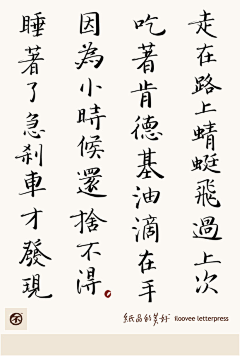 走在路上蜻蜓飛過上次
吃著肯德基油滴在手
因為小時候還捨不得
睡著了急剎車才發現
紙品的美好 Koovee letterpress